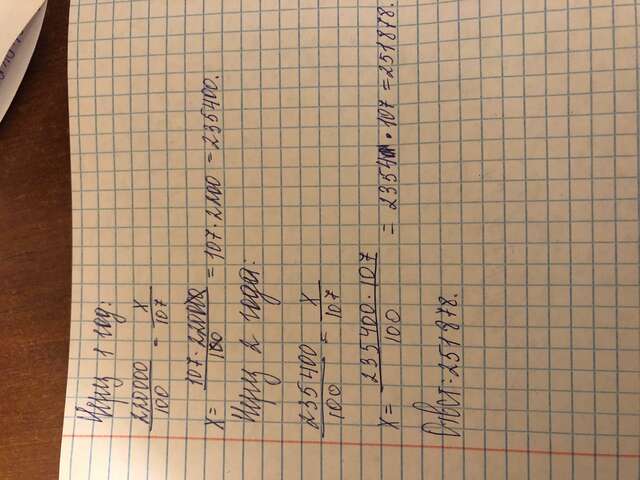 Через 1 год:
220000/100 = x/107
x = 107·220000/100 = 107·2200 = 235400.
Через 2 года:
235400/100 = x/107
x = 235400·107/100 = 2354·107 = 251878.
Ответ: 251878.